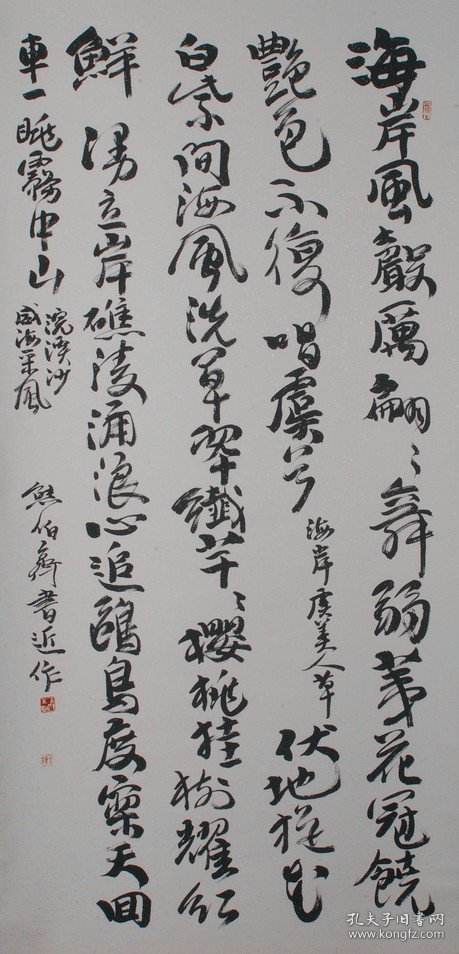 海岸風嚴厲翩々舞弱花冠饒
艷色不復唱虞兮
海岸虞美人草
伏地花
白紫間海風洗草翠纖芊々櫻桃挂樹耀紅
鮮立岸礁淩涌浪心追鷗鳥度寥天回
車一眺霧中山
浣溪沙
威海采風
熊伯齊書近作
孔夫子旧书网
www.kongfz.com